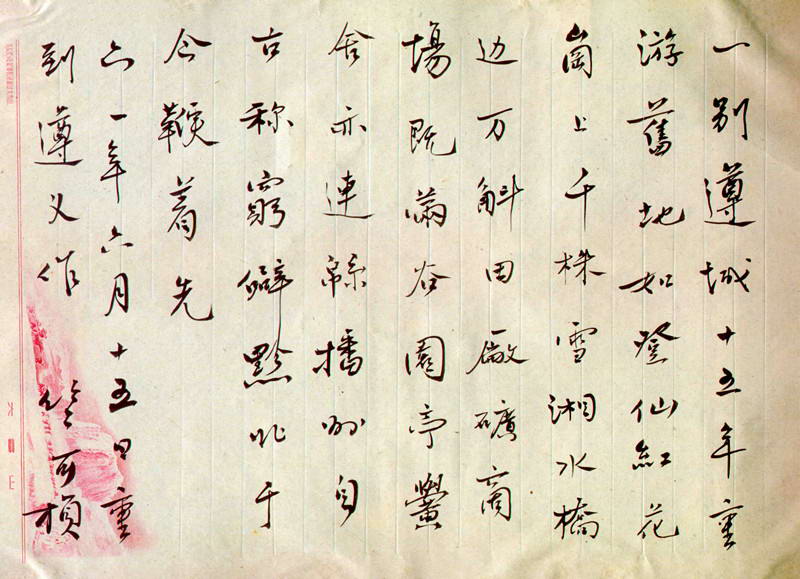 一别遵城十五年重
游舊地如登仙紅花
崗上千株雪湘水橋
边万斛田厰礦商
場既滿谷園亭黌
舍亦連緜播州自
古称窮僻黔北于
今鞭着先
六一年六月十五日重
到遵义作 竺可楨